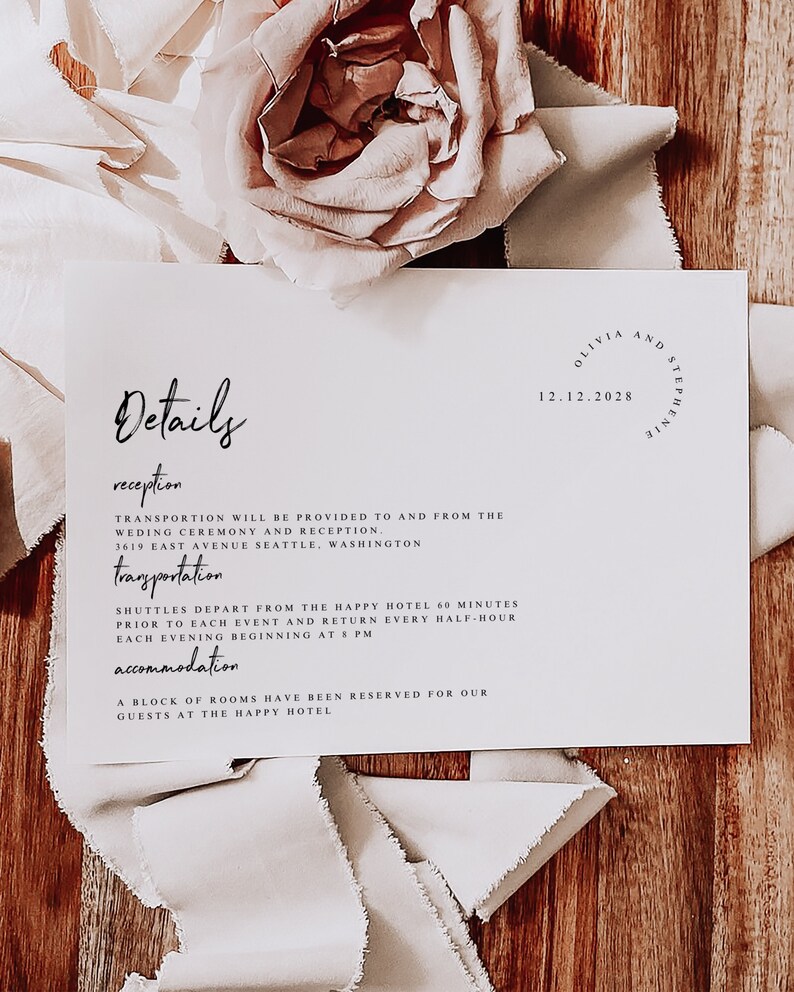 OLIVIA AND STEPHENIE
12.12.2028
Details
reception
TRANSPORTION WILL BE PROVIDED TO AND FROM THE
WEDING CEREMONY AND RECEPTION.
3619 EAST AVENUE SEATTLE, WASHINGTON
transportation
SHUTTLES DEPART FROM THE HAPPY HOTEL 60 MINUTES
PRIOR TO EACH EVENT AND RETURN EVERY HALF-HOUR
EACH EVENING BEGINNING AT 8 PM
accommodation
A BLOCK OF ROOMS HAVE BEEN RESERVED FOR OUR
GUESTS AT THE HAPPY HOTEL